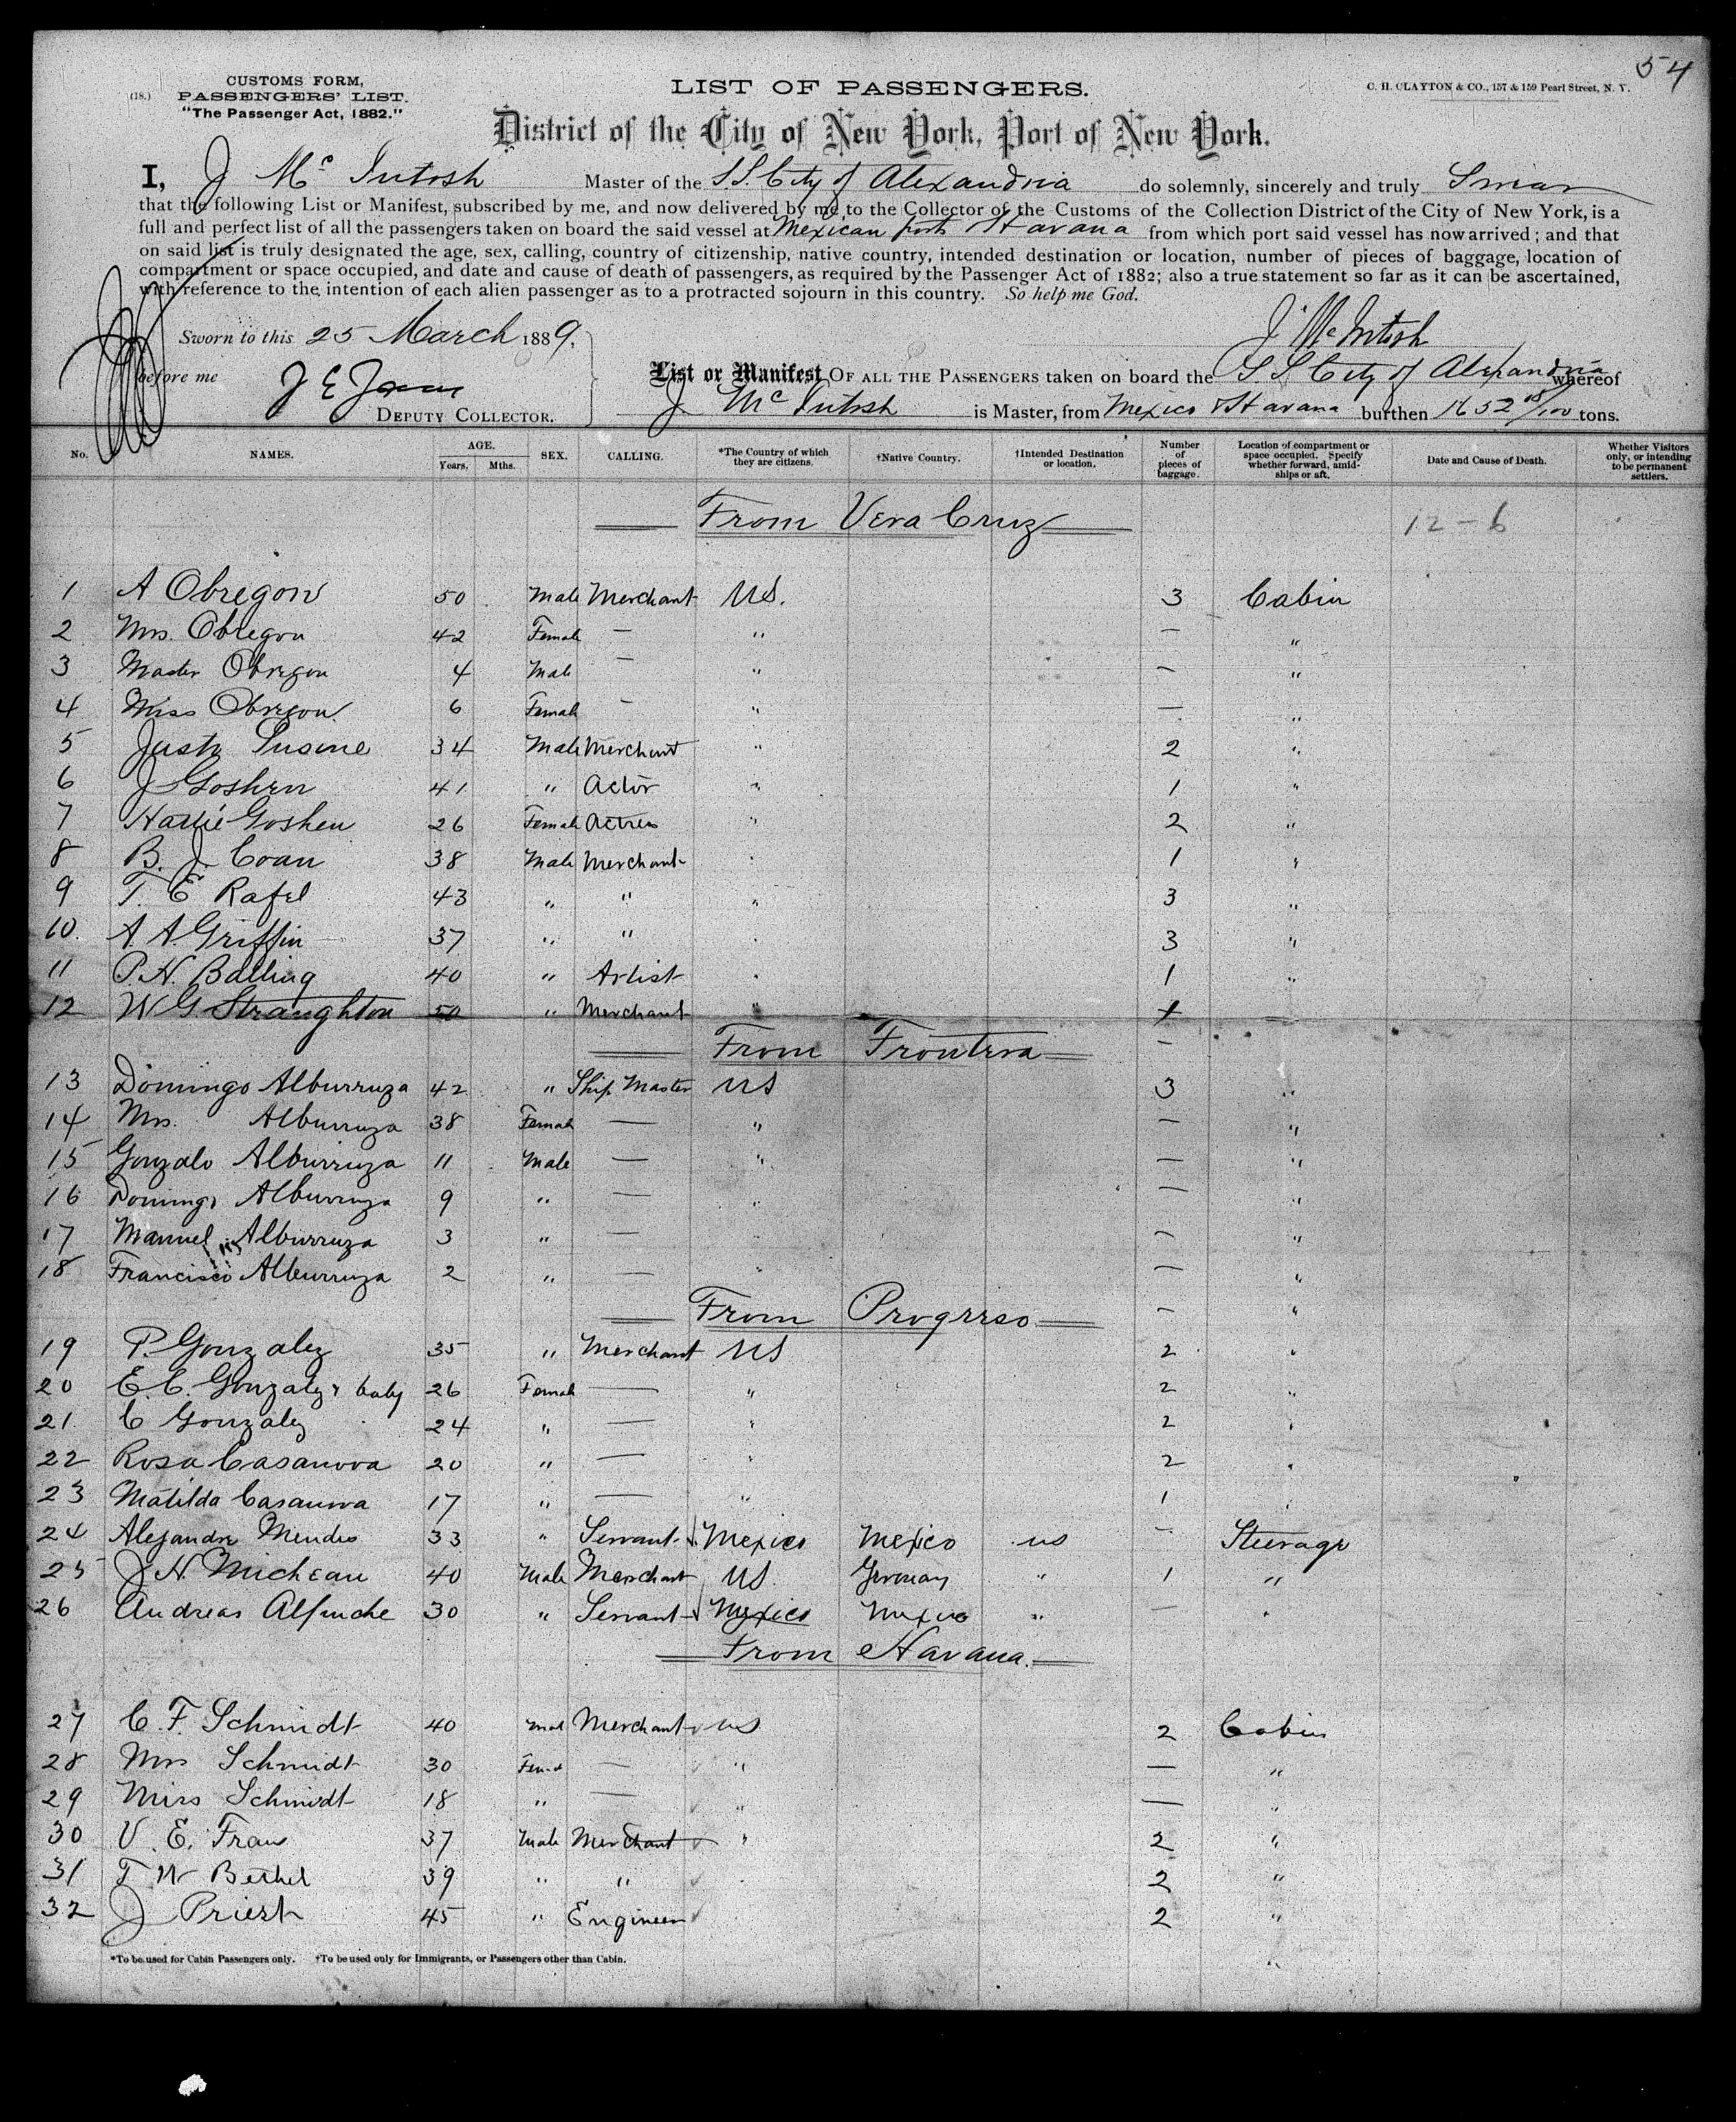 54
CUSTOMS FORM,
(18.) PASSENGERS' LIST.
"The Passenger Act, 1882."
LIST OF PASSENGERS.
C. H. CLAYTON & CO., 157 & 159 Pearl Street, N. Y.
District of the City of New York, Port of New York.
I, J Mc Intosh Master of the S.S. City of Alexandria do solemnly, sincerely and truly Swear
that the following List or Manifest, subscribed by me, and now delivered by me to the Collector of the Customs of the Collection District of the City of New York, is a
full and perfect list of all the passengers taken on board the said vessel at Mexican ports & Havana from which port said vessel has now arrived; and that
on said list is truly designated the age, sex, calling, country of citizenship, native country, intended destination or location, number of pieces of baggage, location of
compartment or space occupied, and date and cause of death of passengers, as required by the Passenger Act of 1882; also a true statement so far as it can be ascertained,
with reference to the intention of each alien passenger as to a protracted sojourn in this country. So help me God.
Sworn to this 25 March 1889,
J McIntosh
before me
J E Jones
DEPUTY COLLECTOR.
List or Manifest OF ALL THE PASSENGERS taken on board the S.S City of Alexandria whereof
J Mc Intosh is Master, from Mexico & Havana burthen 1652 /100 tons.
No. NAMES. AGE. Years. Mths. SEX. CALLING. *The Country of which they are citizens. †Native Country. †Intended Destination or location. Number of pieces of baggage. Location of compartment or space occupied. Specify whether forward, amid-ships or aft. Date and Cause of Death. Whether Visitors only, or intending to be permanent settlers.
From Vera Cruz
12-6
1 A Obregon 50 Male Merchant US. 3 Cabin
2 Mrs. Obregon 42 Female — " — "
3 Master Obregon 4 Male — " — "
4 Miss Obregon 6 Female — " — "
5 Justo 34 Male Merchant " 2 "
6 J Goshen 41 " Actor " 1 "
7 Hattie Goshen 26 Female Actress " 2 "
8 B. J. Coan 38 Male Merchant " 1 "
9 T. E Rafel 43 " " " 3 "
10. A. A. Griffin 37 " " " 3 "
11 P. N. Balling 40 " Artist " 1 "
12 W G. Straughton 50 " Merchant "
From Frontera —
13 Domingo Alburruza 42 " Ship Master US 3 "
14 Mrs. Alburruza 38 Female — " — "
15 Gonzalo Alburruza 11 Male — " — "
16 Domingo Alburruza 9 " — " — "
17 Manuel Alburruza 3 " — " — "
18 Francisco Alburruza 2 " — " — "
From Progreso — "
19 P. Gonzalez 35 " Merchant US 2 "
20 E. C. Gonzalez & baby 26 Female — " 2 "
21. C Gonzalez 24 " — " 2 "
22 Rosa Casanova 20 " — " 2 "
23 Matilda Casanova 17 " — " 1 "
24 Alejandro Mendes 33 " Servant Mexico Mexico US — Steerage
25 J. N. Micheau 40 Male Merchant US. Germany " 1 "
26 Andreas Alpuche 30 " Servant Mexico Mexico " — "
From Havana.
27 C. F. Schmidt 40 Male Merchant US 2 Cabin
28 Mrs Schmidt 30 Female — " — "
29 Miss Schmidt 18 " — " — "
30 V. E. Frau 37 Male Merchant " 2 "
31 T W Bethel 39 " " " 2 "
32 J Priest 45 " Engineer 2 "
*To be used for Cabin Passengers only. †To be used only for Immigrants, or Passengers other than Cabin.